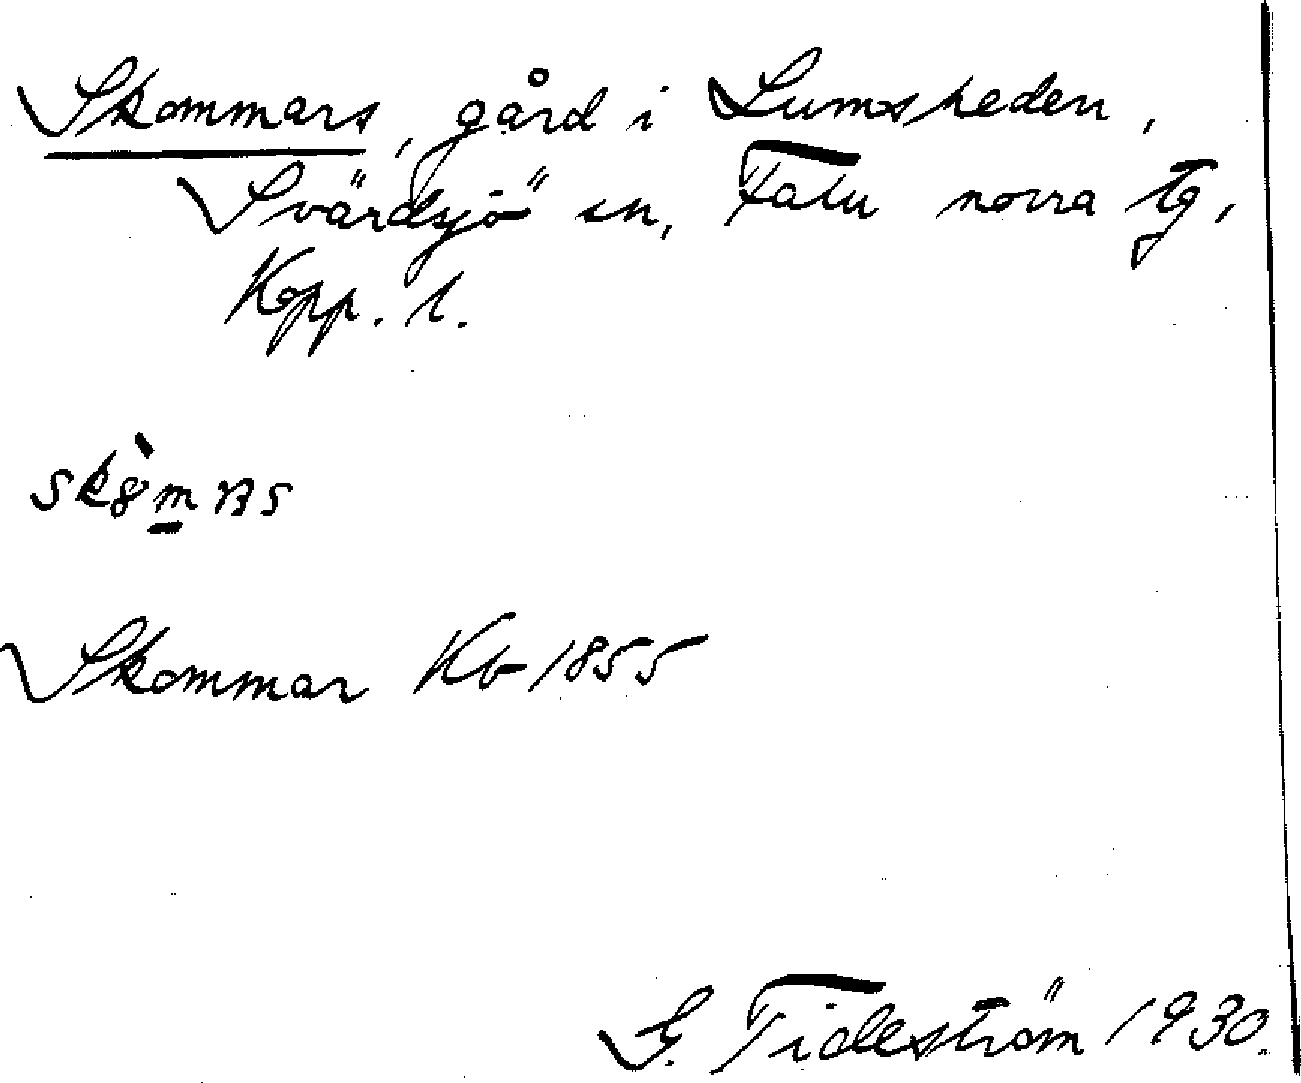 Skommars, gård i Lumsheden,
Svärdsjö sn, Falu norra tg,
Kopp. l.
Skommar Kb 1855
G. Tideström 1930.